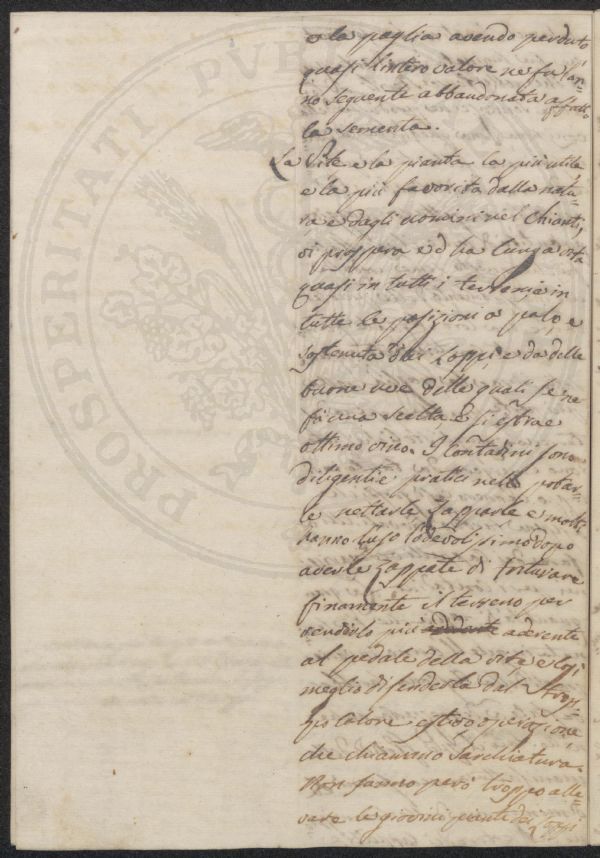 e la paglia avendo perduto
quasi l'intero valore ne fu l'an=
no seguente abbandonata affatto
la sementa.
La Vite e la pianta la più utile
e la più favorita dalla natu=
ra e dagli uomini nel Chianti,
vi prospera ed ha lunga vita
quasi in tutti i terreni e in
tutte le posizioni a palo, e
sostenuta dai loppi, e da delle
buone uve delle quali se ne
fà una scelta, E si estrae
ottimo vino. I Contadini sono
diligenti e pratici nelle potar=
le nettarle zapparle e molti
hanno l'uso lodevolissimo dopo
averle zappate di triturare
finamente il terreno per
renderlo più aderente
al pedale della vite, e così
meglio difenderla dal trop=
po calore estivo, operazione
che chiamano Sarchiatura.
Non fanno però troppo alle=
vare le giovini piante dei loppi
PROSPERITATI